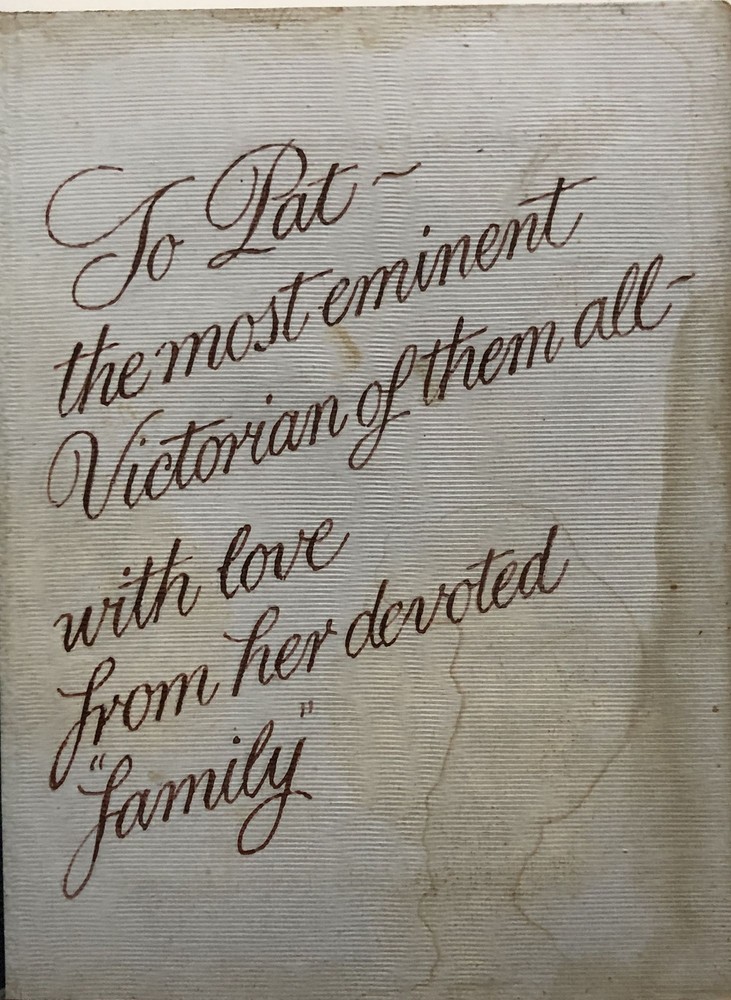 To Pat ~
the most eminent
Victorian of them all-
with love
from her devoted
"family"